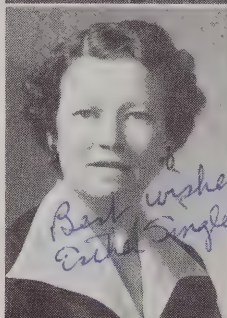 Best wishe
Esther Single